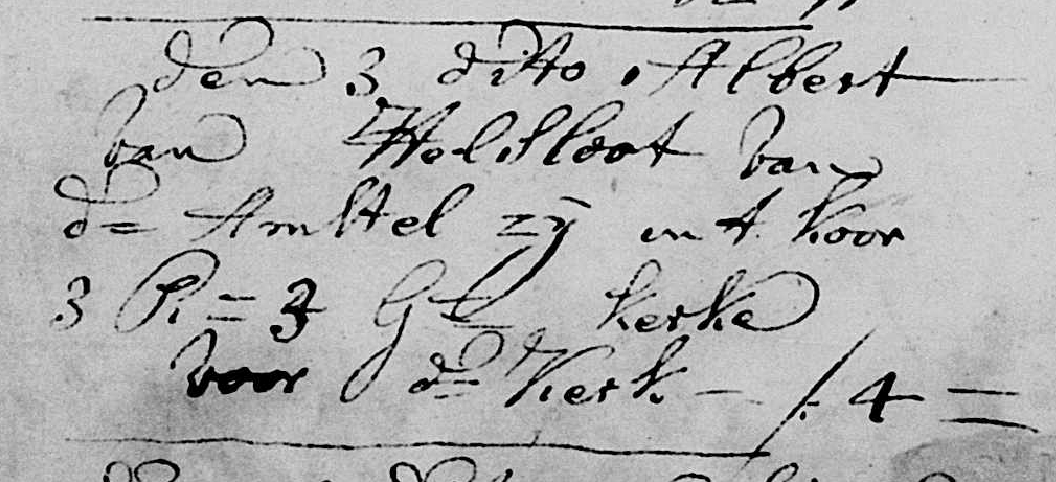 den 3 dito Albert
van Holsloot van
d= Amstel zÿ in t koor
3 R= 3 Gl kerke
voor d= kerk — f: 4 =